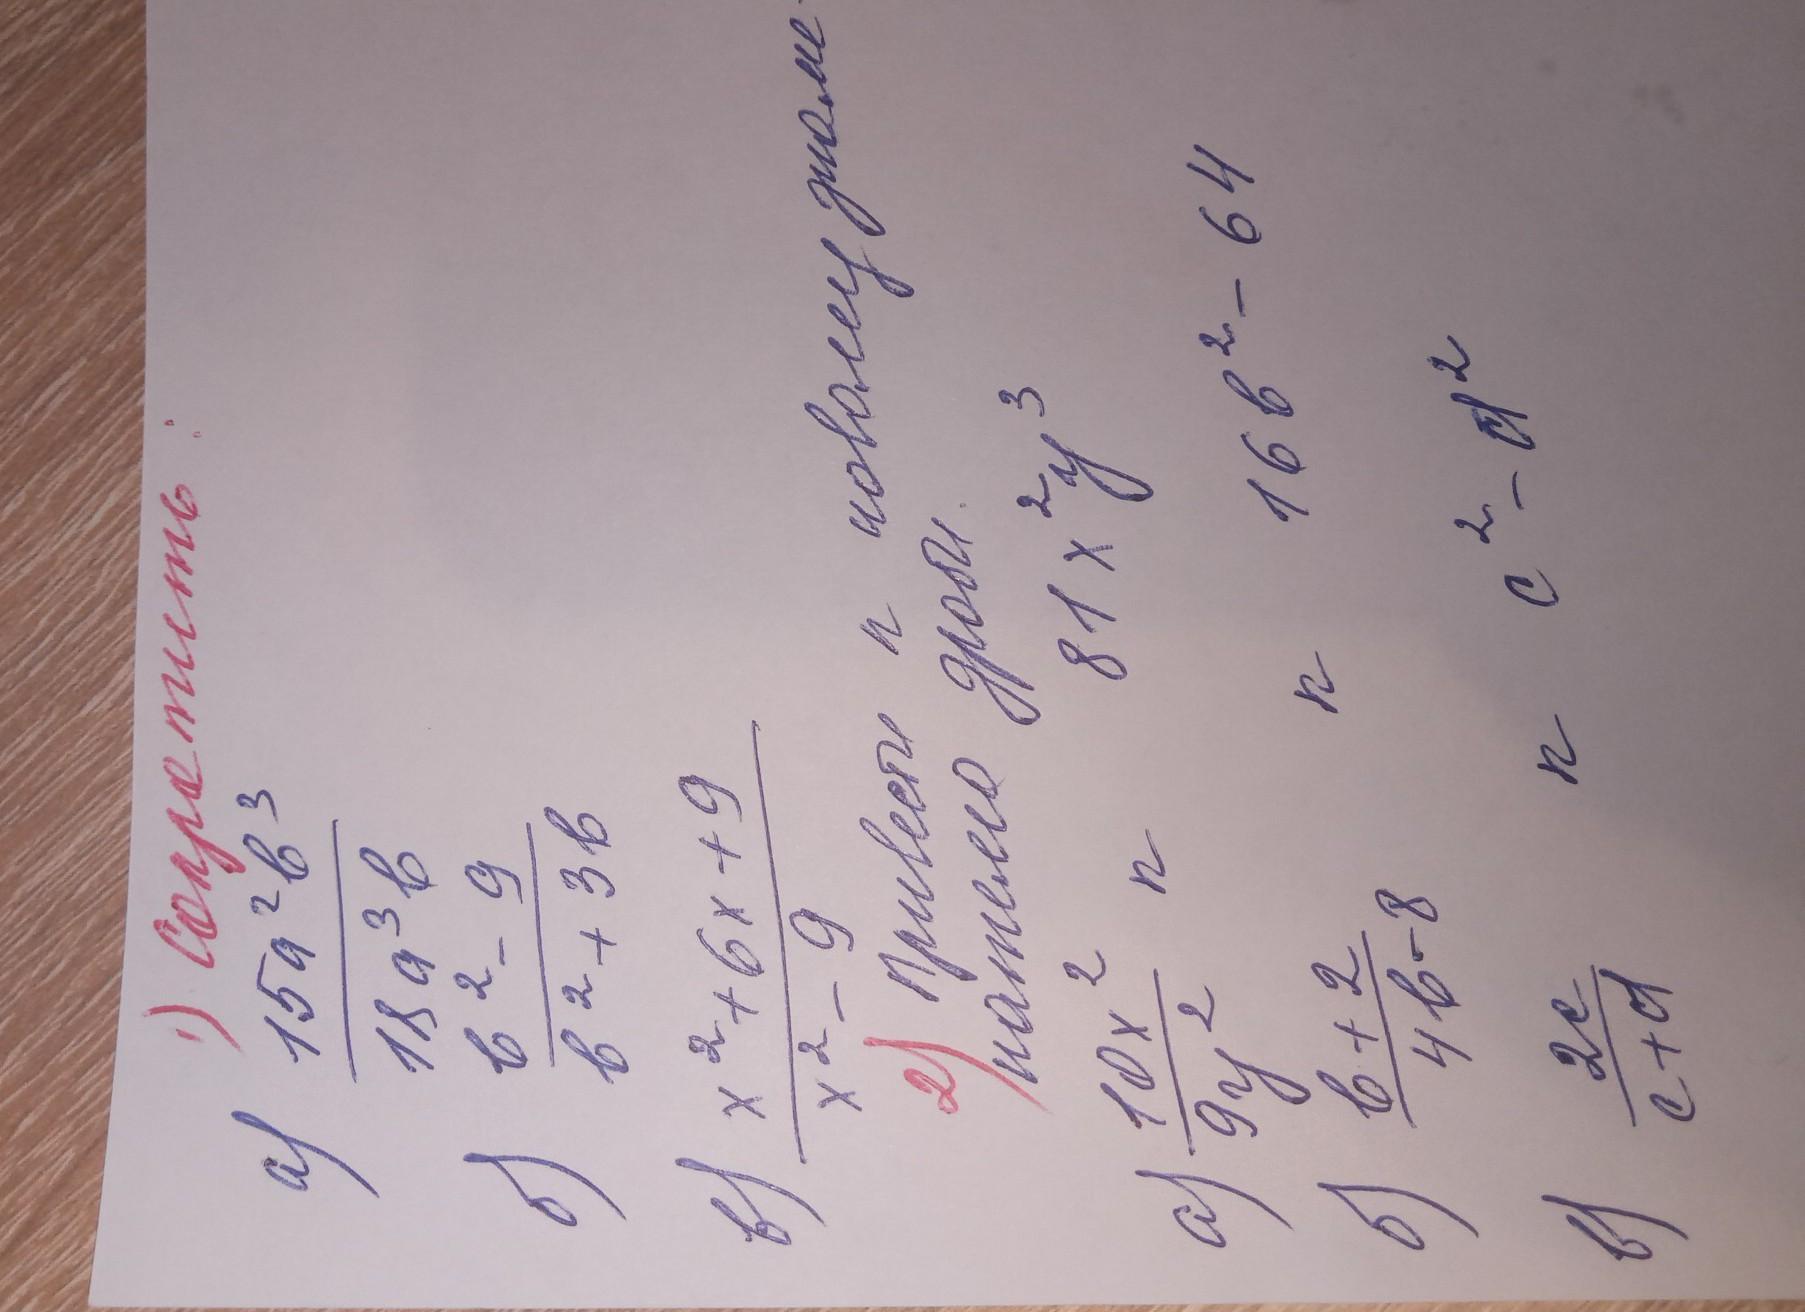 1) Сократить:
а) 15a²b³
18a³b
б) b² - 9
b² + 3b
в) x² + 6x + 9
x² - 9
2) Привести к новому знаме-
нателю дроби.
а) 10x² к 81x²y³
9y²
б) b + 2 к 16b² - 64
4b - 8
в) 2c к c² - d²
c + d